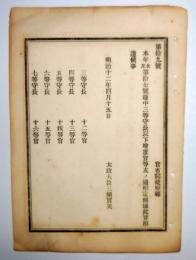 第拾九號
官省院使府縣
本年
第拾七號達中三等守長以下增置官等左ノ通相定候條此旨相
達候事
明治十二年四月十五日
太政大臣三條實美
三等守長　十二等官
四等守長　十三等官
五等守長　十四等官
六等守長　十五等官
七等守長　十六等官